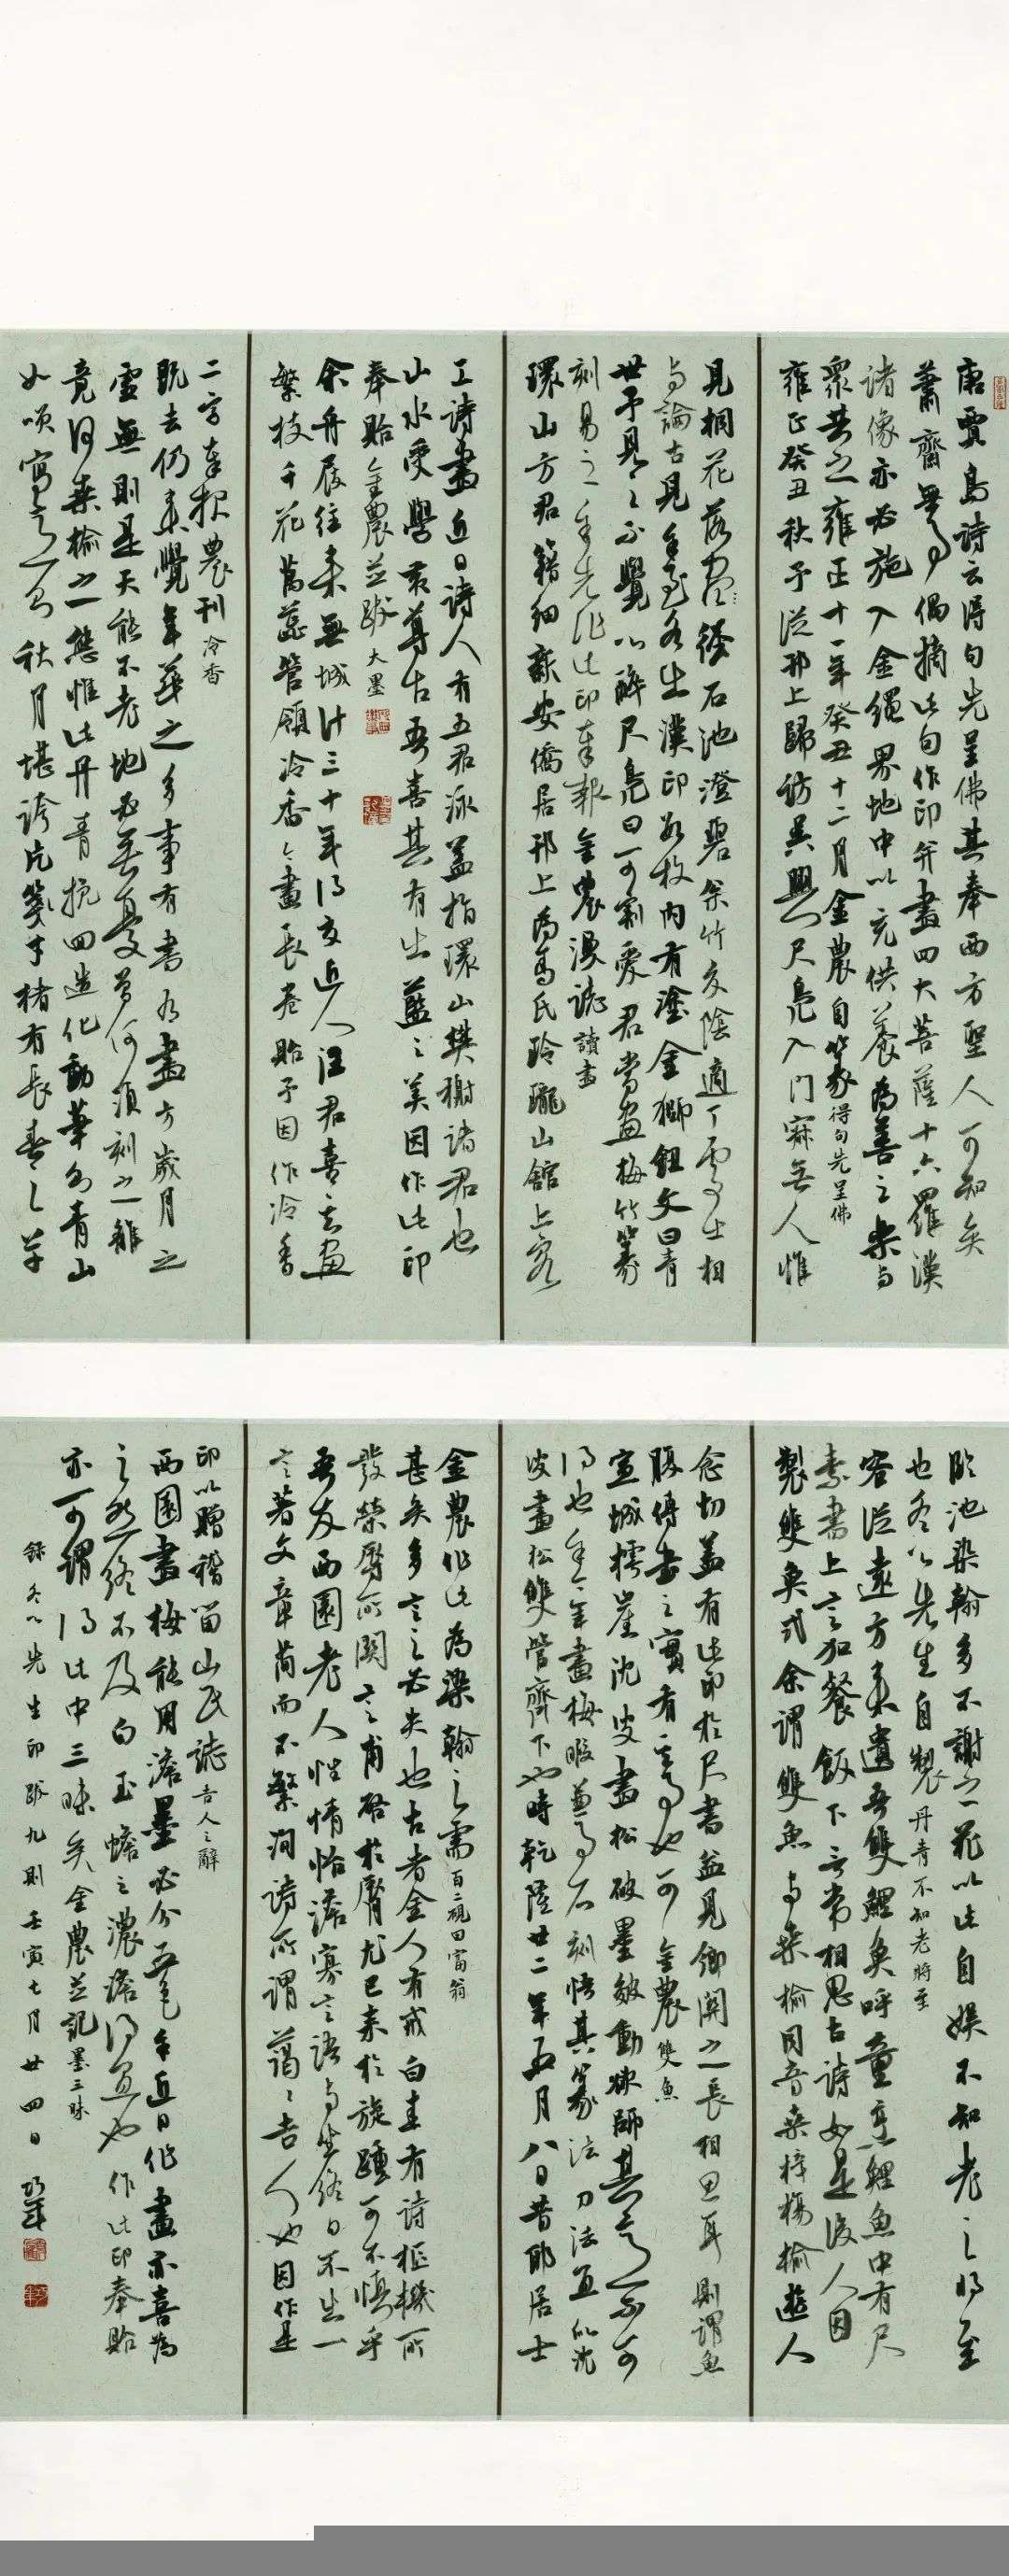 唐賈島詩云得句先呈佛其奉西方聖人可知矣
蕭齋無事偶摘此句作印并畫四大菩薩十六羅漢
諸像亦必施入金繩界地中以充供養為善之樂與
眾共之雍正十一年癸丑十二月金農自篆得句先呈佛
雍正癸丑秋予從邗上歸訪吳興尺鳧入門寂無人惟
見桐花落盡繞石池澄碧桼竹交陰適丁處士相
與論古見手出漢印數枚內有塗金獅鈕文曰青
世予見之不覺心醉尺鳧曰可割愛君當畫梅竹篆
刻易之手先作此印奉報金農漫誌讀畫
環山方君籍細新安僑居邗上為馬氏玲瓏山館上客
工詩畫近日詩人有五君詠蓋指環山樊榭諸君也
山水受學衣尊古吾喜其有出藍之美因作此印
奉貽金農并跋大墨
余舟屐往來無城計三十年得交近人汪君喜其畫
繁枝千花萬蕊管領冷香今畫長卷貽予因作冷香
二字奉報農刊冷香
既去仍來覺年華之多事有書有畫方歲月之
虛無則是天能不老地必無憂曾何頃刻之離
竟何桑榆之態惟此丹青挽回造化動筆則青山
如頌寫之則秋月堪誇片箋寸楮有長春之草
臨池染翰多不謝之花以此自娛不知老之將至
也冬心先生自製丹青不知老將至
客從遠方來遺我雙鯉魚呼童烹鯉魚中有尺
素書上言加餐飯下言常相思古詩如是後人因
製雙魚式余謂雙魚與桑榆同音桑梓楊榆遊人
念切蓋有此印於尺書益見鄉關之長相思耳則謂魚
腹傳書之實有其事也可金農雙魚
宣城梅崖沈皮畫松破墨皴動欲師其意而不可
得也手年畫梅暇兼事石刻悟其篆法刀法直似沈
皮畫松雙管齊下也時乾隆廿二年五月八日昔耶居士
金農作此為染翰之需百二硯田富翁
甚矣多言之必失也古者金人有戒白圭有詩樞機所
發榮辱所關言甫啟於唇尤已來於旋踵可不慎乎
吾友西園老人性情恬澹寡言語與坐終日不出一
言著文章簡而不繁洵詩所謂藹藹吉人也因作是
印以贈稽留山民誌吉人之辭
西園畫梅能用澹墨必分五色手近日作畫亦喜為
之然終不及白玉蟾之濃澹得宜也作此印奉貽
亦可謂得此中三昧矣金農並記墨三昧
錄冬心先生印跋九則壬寅七月廿四日